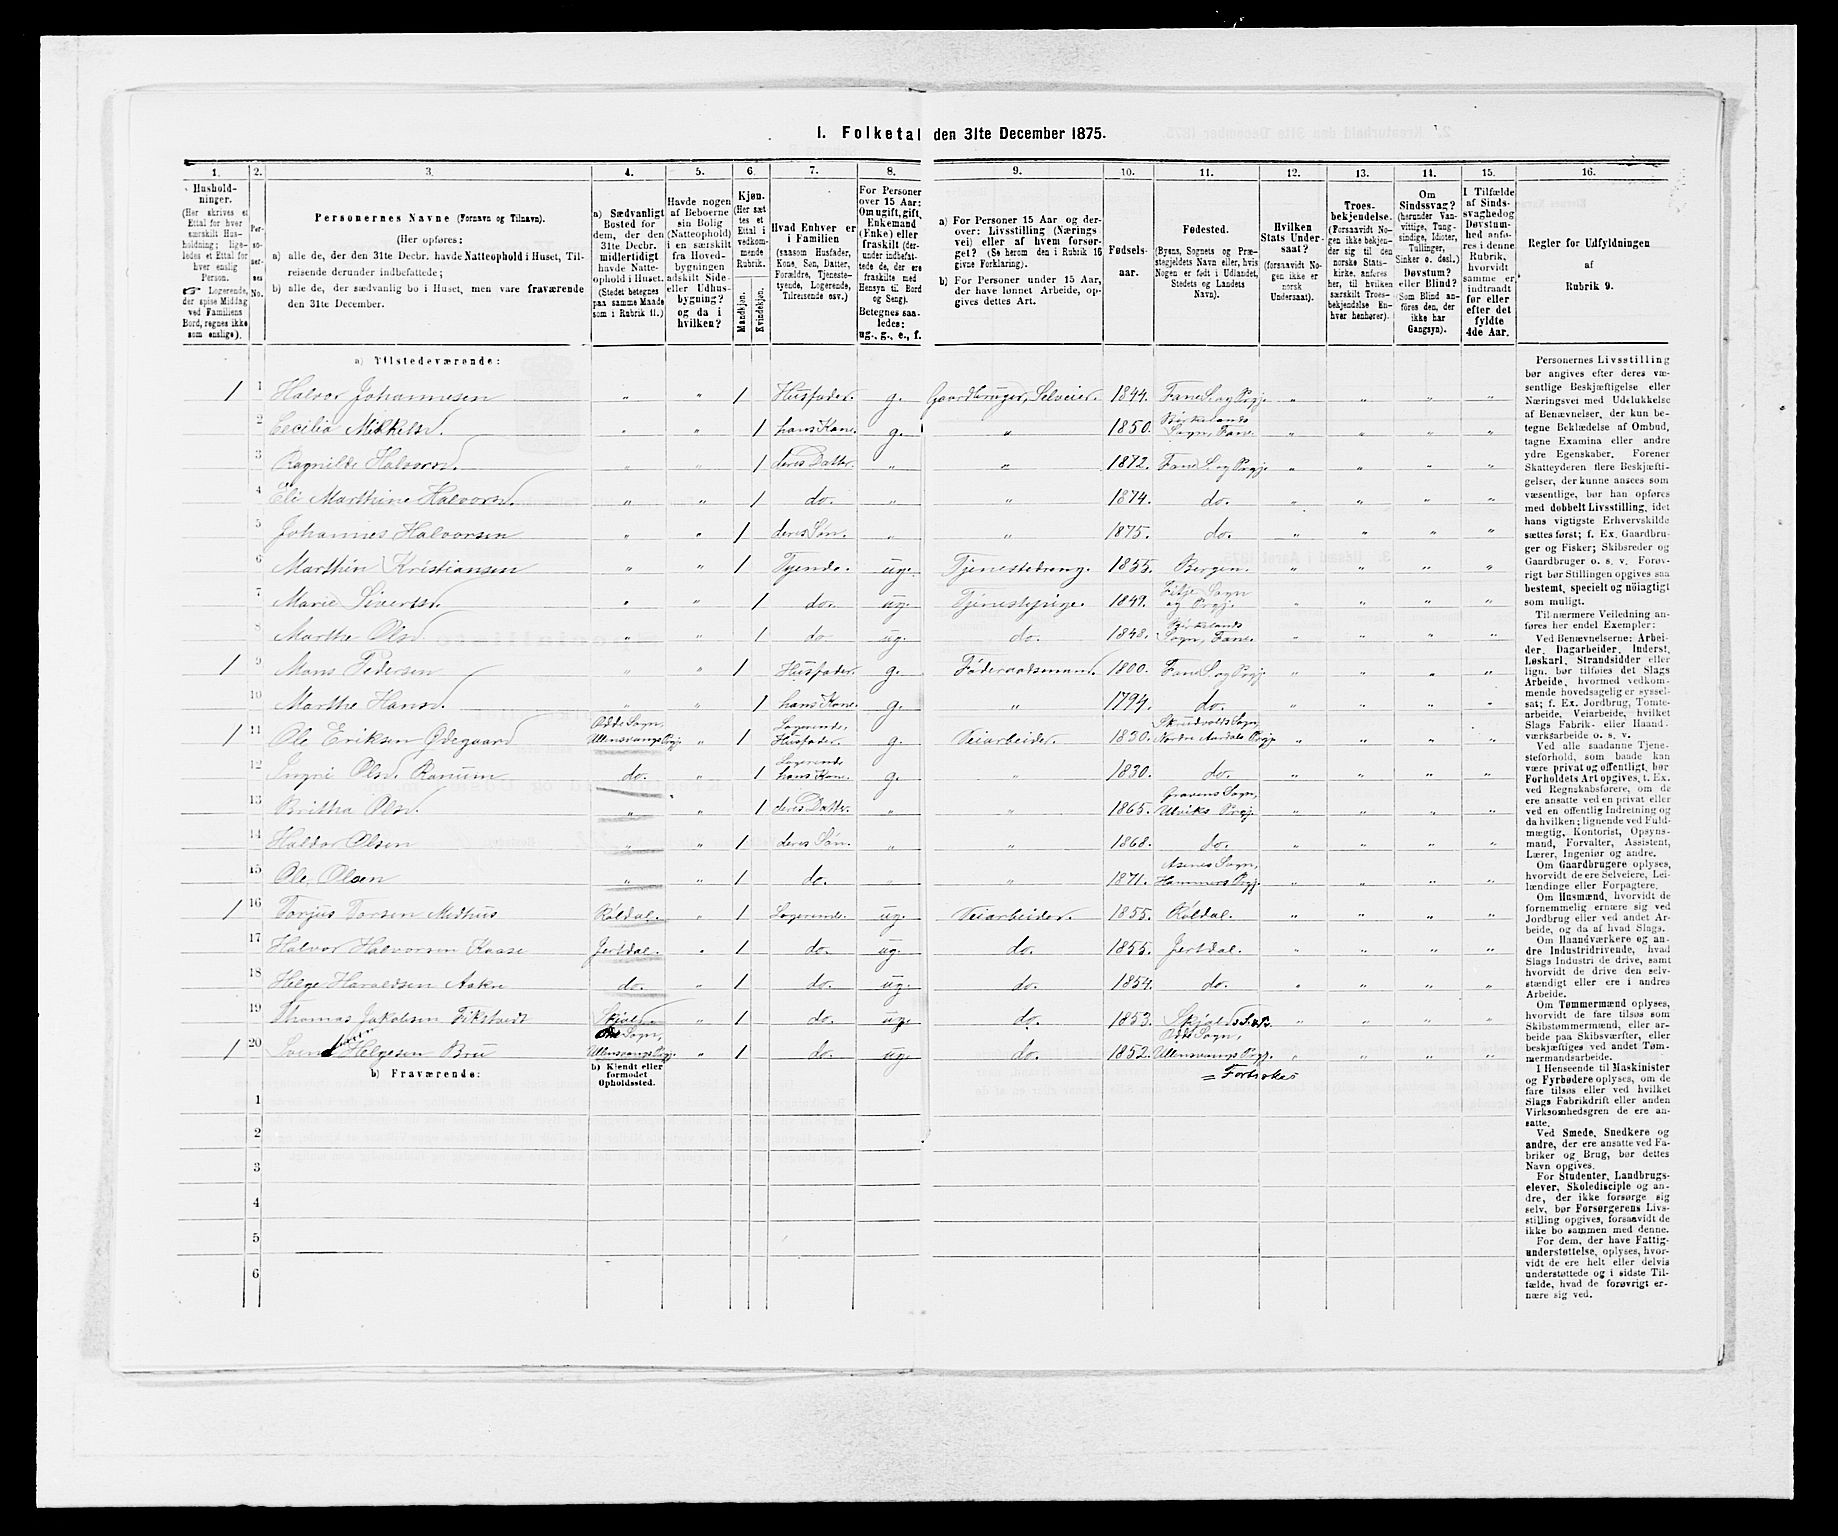 1. Folketal den 31te December 1875.
1. 2. 3. 4. 5. 6. 7. 8. 9. 10. 11. 12. 13. 14. 15. 16.
Hushold-
ninger.
(Her skrives et
Ettal for hver
særskilt Hus-
holdning; lige-
ledes et Ettal for
hver enslig
Person.
☛ Logerende,
der spise Middag
ved Familiens
Bord, regnes ikke
som enslige).
Per-
so-
ner-
nes
No.
Personernes Navne (Fornavn og Tilnavn).
(Her opføres:
a) alle de, der den 31te Decbr. havde Natteophold i Huset, Til-
reisende derunder indbefattede;
b) alle de, der sædvanlig bo i Huset, men vare fraværende
den 31te December.
a) Sædvanligt
Bosted for
dem, der den
31te Decbr.
midlertidigt
havde Natte-
ophold i Huset.
(Stedet betegnes
paa samme Maade
som i Rubrik 11.)
Havde nogen
af Beboerne
sin Bolig
(Natteophold)
i en særskilt
fra Hoved-
bygningen
adskilt Side
eller Udhus-
bygning?
og da i
hvilken?
Kjøn.
(Her sæt
tes et
Ettal i
vedkom-
mende
Rubrik.
Mandkjøn.
Kvindekjøn.
Hvad Enhver er
i Familien
(saasom Husfader,
Kone, Søn, Datter,
Forældre, Tjeneste-
tyende, Logerende,
Tilreisende osv.)
For Personer
over 15 Aar:
Om ugift, gift,
Enkemand
(Enke) eller
fraskilt (der-
under indbefat-
tede de, der ere
fraskilte med
Hensyn til Bord
og Seng).
Betegnes saa-
ledes:
ug., g., e., f.
a) For Personer 15 Aar og der-
over: Livsstilling (Nærings
vei) eller af hvem forsør-
get? (Se herom den i Rubrik 16
givne Forklaring).
b) For Personer under 15 Aar,
der have lønnet Arbeide, op-
gives dettes Art.
Fødsels-
aar.
Fødested.
(Byens, Sognets og Præ-
stegjeldets Navn eller, hvis
Nogen er født i Udlandet,
Stedets og Landets
Navn).
Hvilken
Stats Under-
saat?
(forsaavidt No-
gen ikke er
norsk
Undersaat).
Troes-
bekjendelse.
(Forsaavidt No-
gen ikke bekjen-
der sig til den
norske Stats-
kirke, anføres
her, til hvilken
særskilt Troes-
bekjendelse En-
hver henhører).
Om
Sindssvag?
(herunder Van-
vittige, Tung-
sindige, Idioter,
Tullinger,
Sinker o. desl.)
Døvstum?
eller Blind?
Som Blind an-
føres den, der
ikke har
Gangsyn).
I Tilfælde
af Sinds-
svaghed og
Døvstum-
hed anfø-
res i denne
Rubrik,
hvorvidt
samme er
indtraadt
før eller
efter det
fyldte
4de Aar.
Regler for Udfyldningen
af
Rubrik 9.
a) Tilstedeværende:
1 1 Halvor Johannesen " " 1 Husfader. g. Gaardbruger, Selveier. 1844. Fane S. og Prgj. " " " "
2 Cecilia Mikkelsd. " " 1 hans Kone. g. " 1850. Birkelands Sogn, Fane. " " " "
3 Ragnilde Halvorsd. " " 1 deres Datter. " " 1872. Fane S. og Prgj. " " " "
4 Eli Marthine Halvorsd. " " 1 do. " " 1874. do. " " " "
5 Johannes Halvorsen " " 1 deres Søn. " " 1875. do. " " " "
6 Marthin Kristiansen " " 1 Tyende. ug. Tjenestedreng. 1855. Bergen. " " " "
7 Marie Sivertsd. " " 1 do. ug. Tjenestepige. 1849. Fitje Sogn og Prgj. " " " "
8 Marthe Olsd. " " 1 do. ug. do. 1848. Birkelands Sogn, Fane. " " " "
1 9 Mons Pedersen " " 1 Husfader. g. Føderaadsmand. 1800. Fane S. og Prgj. " " " "
10 Marthe Hansd. " " 1 hans Kone. g. " 1794. do. " " " "
1 11 Ole Eriksen Ødegaard Odde Sogn, Ullensvangs Prgj. " 1 Logerende, Husfader. g. Veiarbeider. 1830. Skrudvolls Sogn, Nordre Aurdals Prgj. " " " "
12 Ingri Olsd. Ranum do. " 1 Logerende hans Kone. g. " 1830. do. " " " "
13 Britha Olsd. " " 1 deres Datter. " " 1865. Gravens Sogn, Ulviks Prgj. " " " "
14 Haldor Olsen " " 1 deres Søn. " " 1868. do. " " " "
15 Ole Olsen " " 1 do. " " 1871. Asenes Sogn, Hammers Prgj. " " " "
1 16 Torjus Torsen Midhus Røldal. " 1 Logerende. ug. Veiarbeider. 1855. Røldal. " " " "
17 Halvor Halvorsen Kaase Jertdal. " 1 do. ug. do. 1855. Jertdal. " " " "
18 Helge Haraldsen Aakre do. " 1 do. ug. do. 1854. do. " " " "
19 Thomas Jakobsen Fikstvedt Skjold. " 1 do. ug. do. 1853. Skjold S. og Pr. " " " "
1 20 Svend Helgesen Bru Odde Sogn, Ullensvangs Prgj. " 1 do. ug. do. 1852. Odde Sogn, Ullensvangs Prgj. " " " "
b) Fraværende:
b) Kjendt eller
formodet
Opholdssted.
= Fortsættes
1
2
3
4
5
6
Personernes Livsstilling
bør angives efter deres væ-
sentlige Beskjæftigelse eller
Næringsvei med Udelukkelse
af Benævnelser, der kun be-
tegne Beklædelse af Ombud,
tagne Examina eller andre
ydre Egenskaber. Forener
Skatteyderen flere Beskjæfti-
gelser, der kunne ansees som
væsentlige, bør han opføres
med dobbelt Livsstilling, idet
hans vigtigste Erhvervskilde
sættes først; f. Ex. Gaardbru-
ger og Fisker; Skibsreder og
Gaardbruger o. s. v. Forøv-
rigt bør Stillingen opgives saa
bestemt, specielt og nøiagtigt
som muligt.
Til nærmere Veiledning an-
føres her endel Exempler:
Ved Benævnelserne: Arbei-
der, Dagarbeider, Inderst,
Løskarl, Strandsidder eller
lign. bør tilføies det Slags
Arbeide, hvormed vedkom-
mende hovedsagelig er syssel-
sat; f. Ex. Jordbrug, Tomte-
arbeide, Veiarbeide, hvilket
Slags Fabrik- eller Haand-
værksarbeide o. s. v.
Ved alle saadanne Tjene-
steforhold, som baade kan
være privat og offentligt, bør
Forholdets Art opgives, t. Ex.
ved Regnskabsførere, om de
ere ansatte ved en privat eller
ved en offentlig Indretning og
da hvilken; lignende ved Fuld-
mægtig, Kontorist, Opsyns-
mand, Forvalter, Assistent,
Lærer, Ingeniør og andre.
Om Gaardbrugere oplyses,
hvorvidt de ere Selveiere, Lei-
lændinge eller Forpagtere.
Om Husmænd, hvorvidt de
fornemmelig ernære sig ved
Jordbrug eller ved andet Ar-
beide, og da af hvad Slags.
Om Haandværkere og an-
dre Industridrivende, hvad
Slags Industri de drive, samt
hvorvidt de drive den selv-
stændigt eller ere i andres
Arbeide.
Om Tømmermænd oplyses,
hvorvidt de fare tilsøs som
Skibstømmermænd, eller ar-
beide paa Skibsværfter, eller
beskjæftiges ved andet Tøm-
mermandsarbeide.
I Henseende til Maskinister
og Fyrbødere oplyses, om de
fare tilsøs eller ved hvilket
Slags Fabrikdrift eller anden
Virksomhedsgren de ere an-
satte.
Ved Smede, Snedkere og
andre, der ere ansatte ved Fa-
briker og Brug, bør dettes
Navn opgives.
For Studenter, Landbrugs-
elever, Skoledisciple og an-
dre, der ikke forsørge sig
selv, bør Forsørgerens Livs-
stilling opgives, forsaavidt de
ikke bo sammen med denne.
For dem, der have Fattig-
understøttelse, oplyses, hvor-
vidt de ere helt eller delvis
understøttede og i sidste Til-
fælde, hvad de forøvrigt er-
nære sig ved.